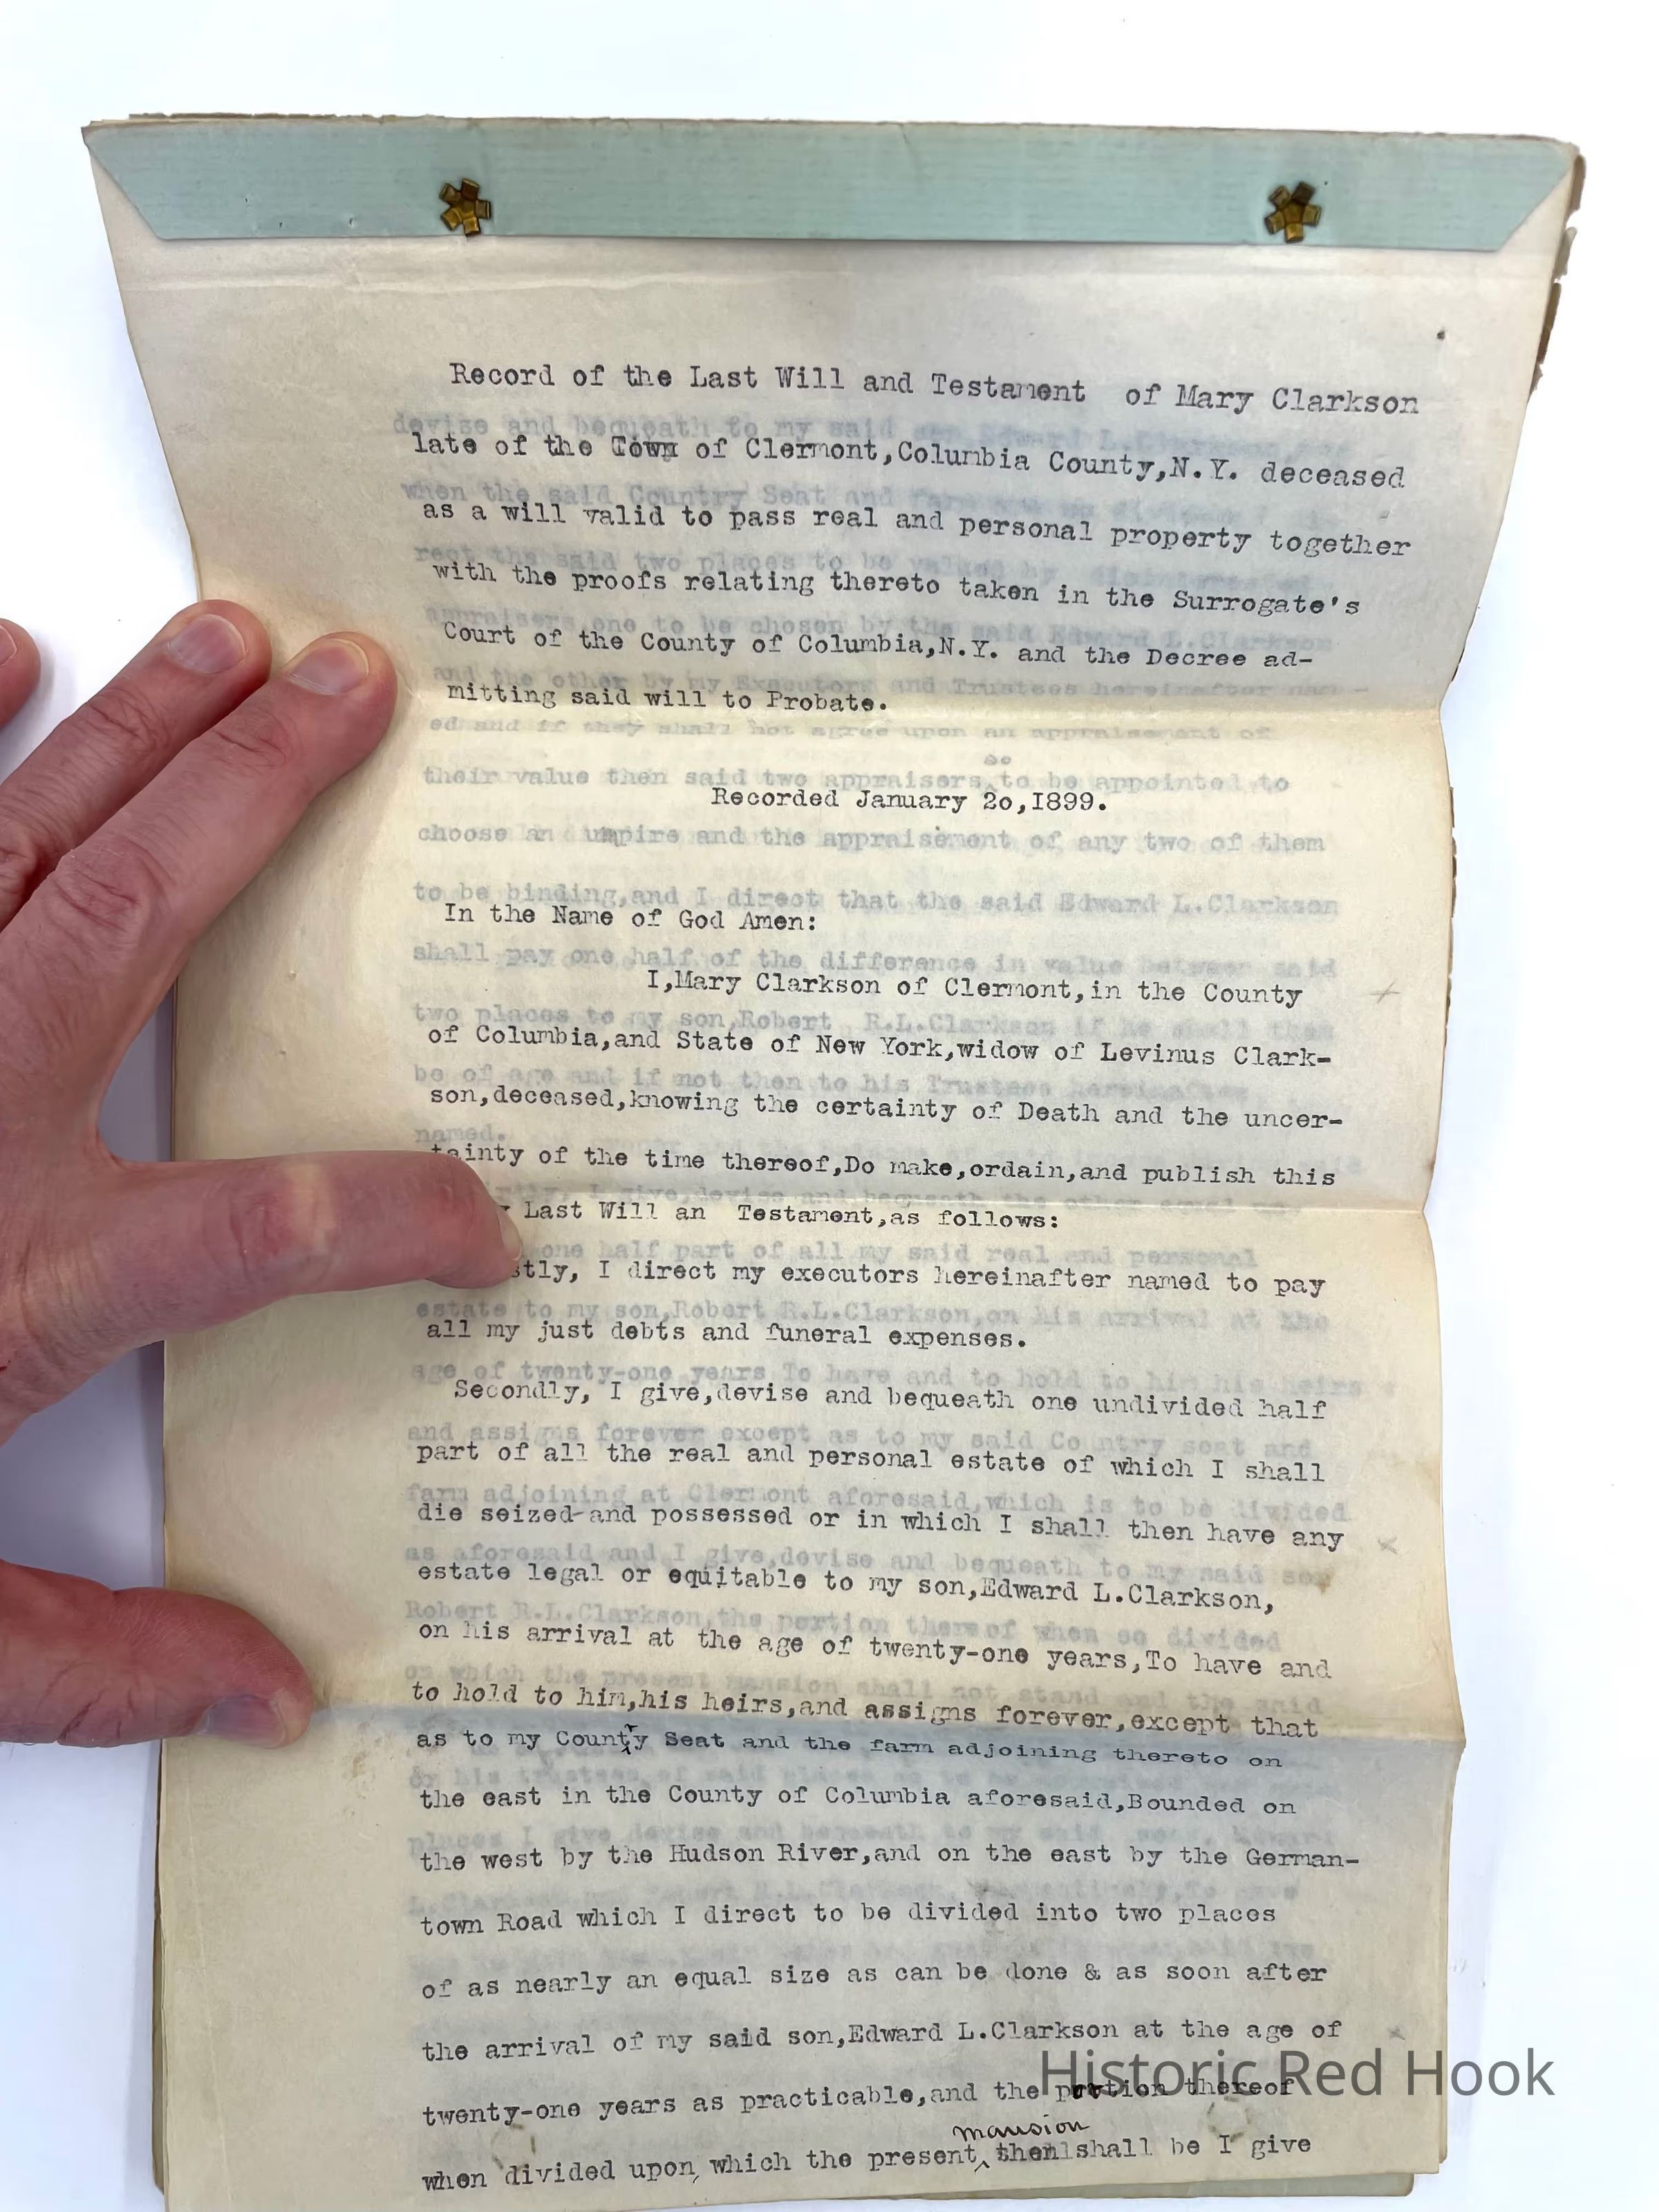 Record of the Last Will and Testament of Mary Clarkson
late of the Town of Clermont,Columbia County,N.Y. deceased
as a will valid to pass real and personal property together
with the proofs relating thereto taken in the Surrogate's
Court of the County of Columbia,N.Y. and the Decree ad-
mitting said will to Probate.
Recorded January 2o,I899.
In the Name of God Amen:
I,Mary Clarkson of Clermont,in the County
of Columbia,and State of New York,widow of Levinus Clark-
son,deceased,knowing the certainty of Death and the uncer-
tainty of the time thereof,Do make,ordain,and publish this
Last Will an Testament,as follows:
stly, I direct my executors hereinafter named to pay
all my just debts and funeral expenses.
Secondly, I give,devise and bequeath one undivided half
part of all the real and personal estate of which I shall
die seized-and possessed or in which I shall then have any
estate legal or equitable to my son,Edward L.Clarkson,
on his arrival at the age of twenty-one years,To have and
to hold to him,his heirs,and assigns forever,except that
as to my Country Seat and the farm adjoining thereto on
the east in the County of Columbia aforesaid,Bounded on
the west by the Hudson River,and on the east by the German-
town Road which I direct to be divided into two places
of as nearly an equal size as can be done & as soon after
the arrival of my said son,Edward L.Clarkson at the age of
twenty-one years as practicable,and the portion thereof
mansion
when divided upon which the present shall be I give
Historic Red Hook